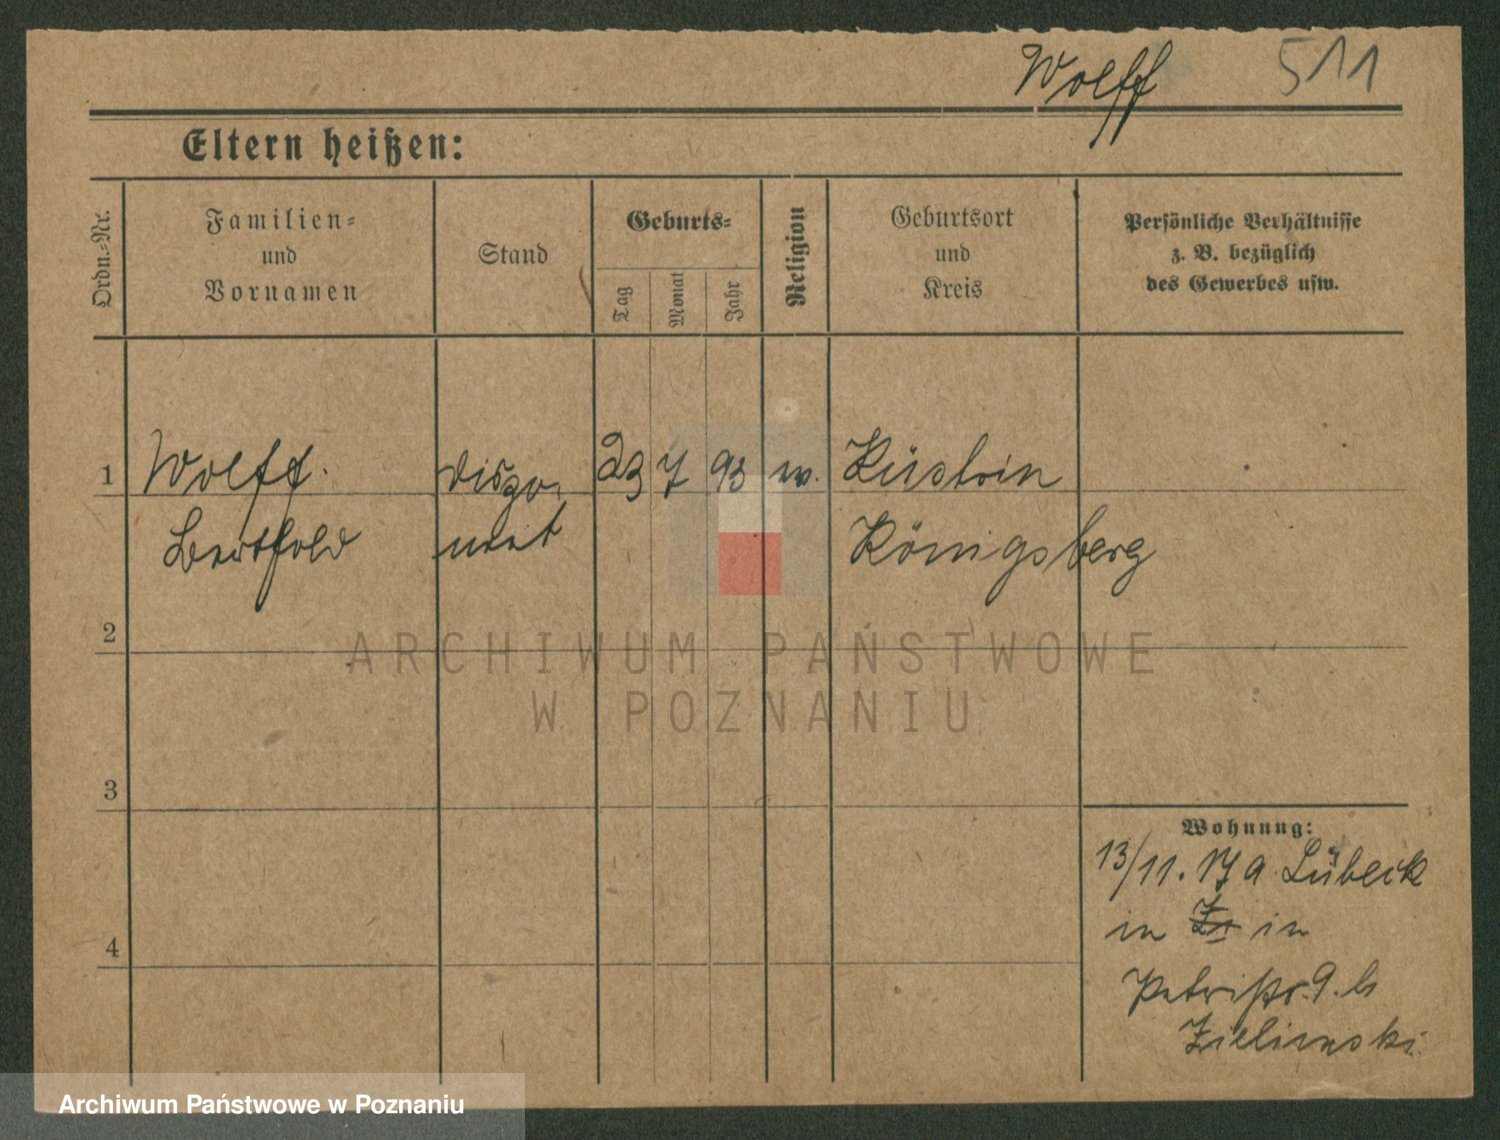 Wolff 511
Eltern heißen:
Ordn.-Nr.
Familien-
und
Vornamen
Stand
Geburts-
Tag
Monat
Jahr
Religion
Geburtsort
und
Kreis
Persönliche Verhältnisse
z. B. bezüglich
des Gewerbes usw.
1 Wolff. Dispo- 23 7 93 Küstrin
Berthold nent Königsberg
2
3
4
Wohnung:
13/11. 17 a Lübeck
in in
Petristr. 9. b
Zielinski
ARCHIWUM PAŃSTWOWE
W POZNANIU
Archiwum Państwowe w Poznaniu